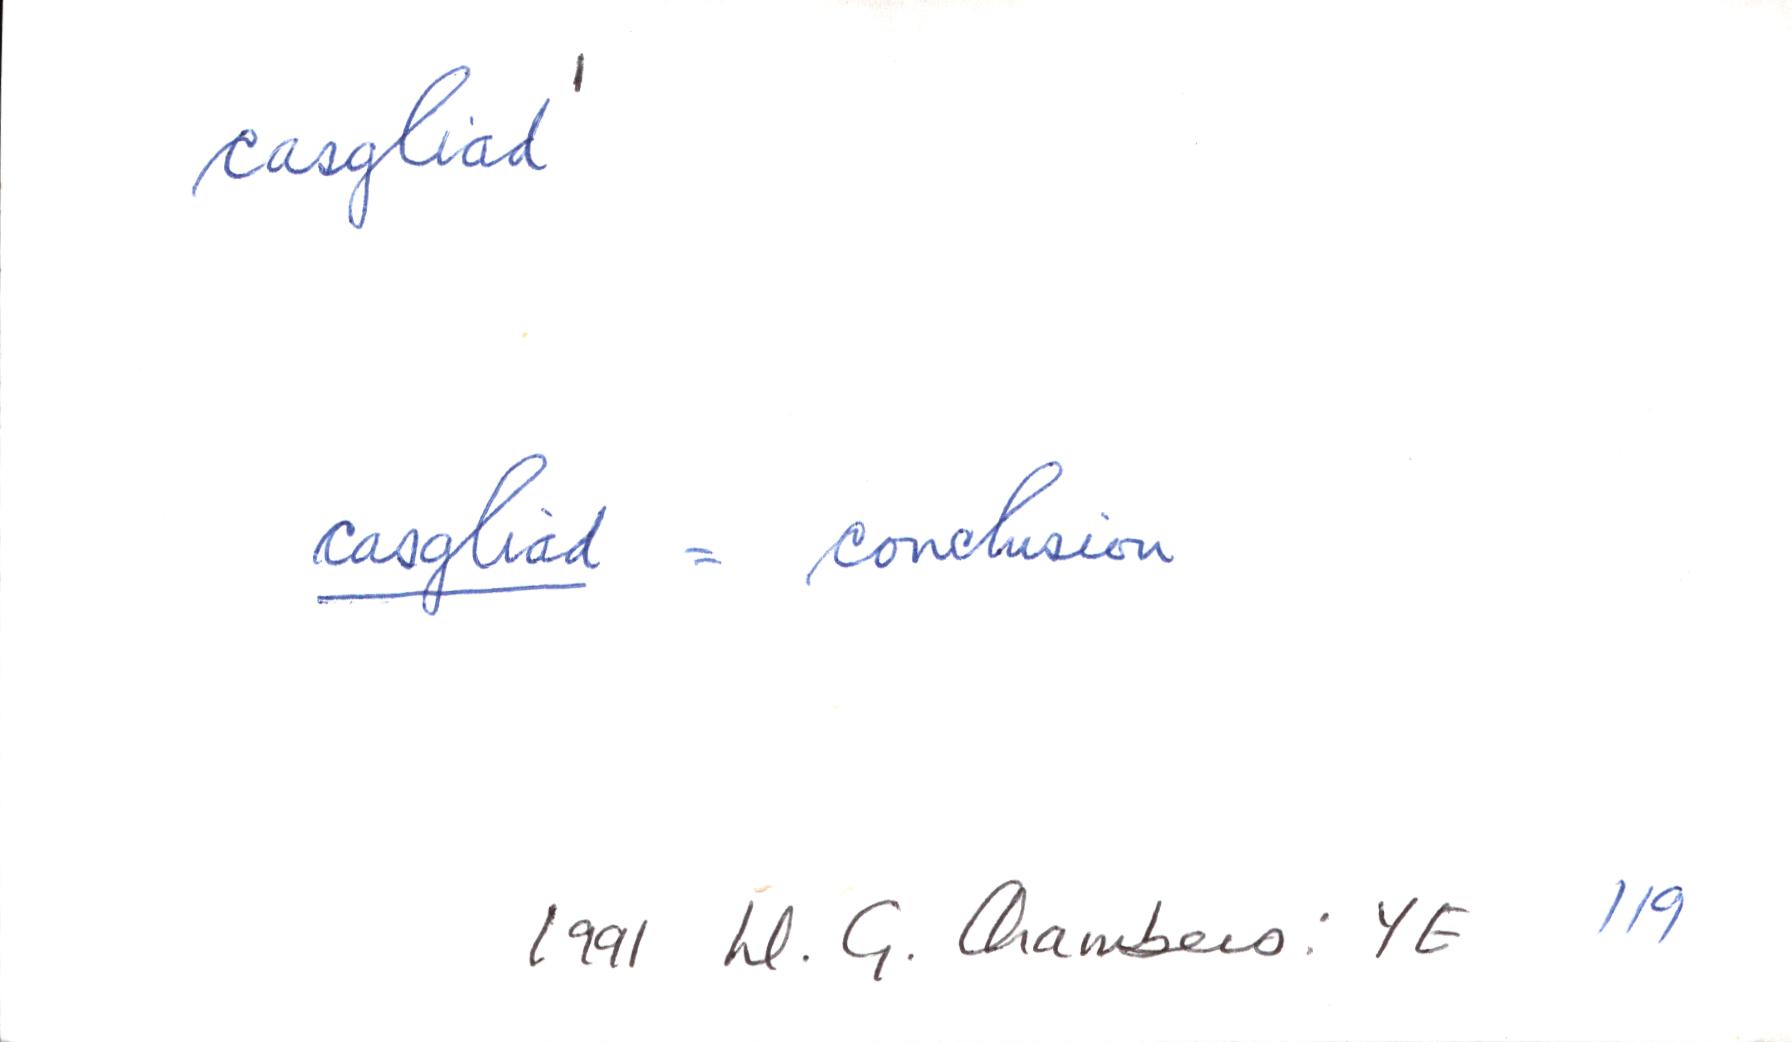 casgliad¹
casgliad = conclusion
1991 Ll. G. Chambers: YE 119